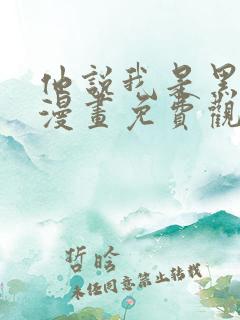 他說我是黑
漫畫免費觀
哲晗
未经同意禁止转载